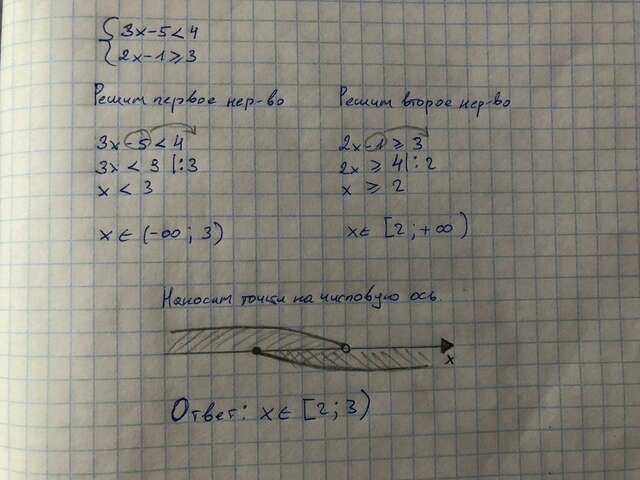 { 3x-5<4
2x-1≥3
Решим первое нер-во
3x -5 < 4
3x < 9 |:3
x < 3
x ∈ (-∞; 3)
Решим второе нер-во
2x -1 ≥ 3
2x ≥ 4 |:2
x ≥ 2
x ∈ [2; +∞)
Наносим точки на числовую ось.
x
Ответ: x ∈ [2; 3)